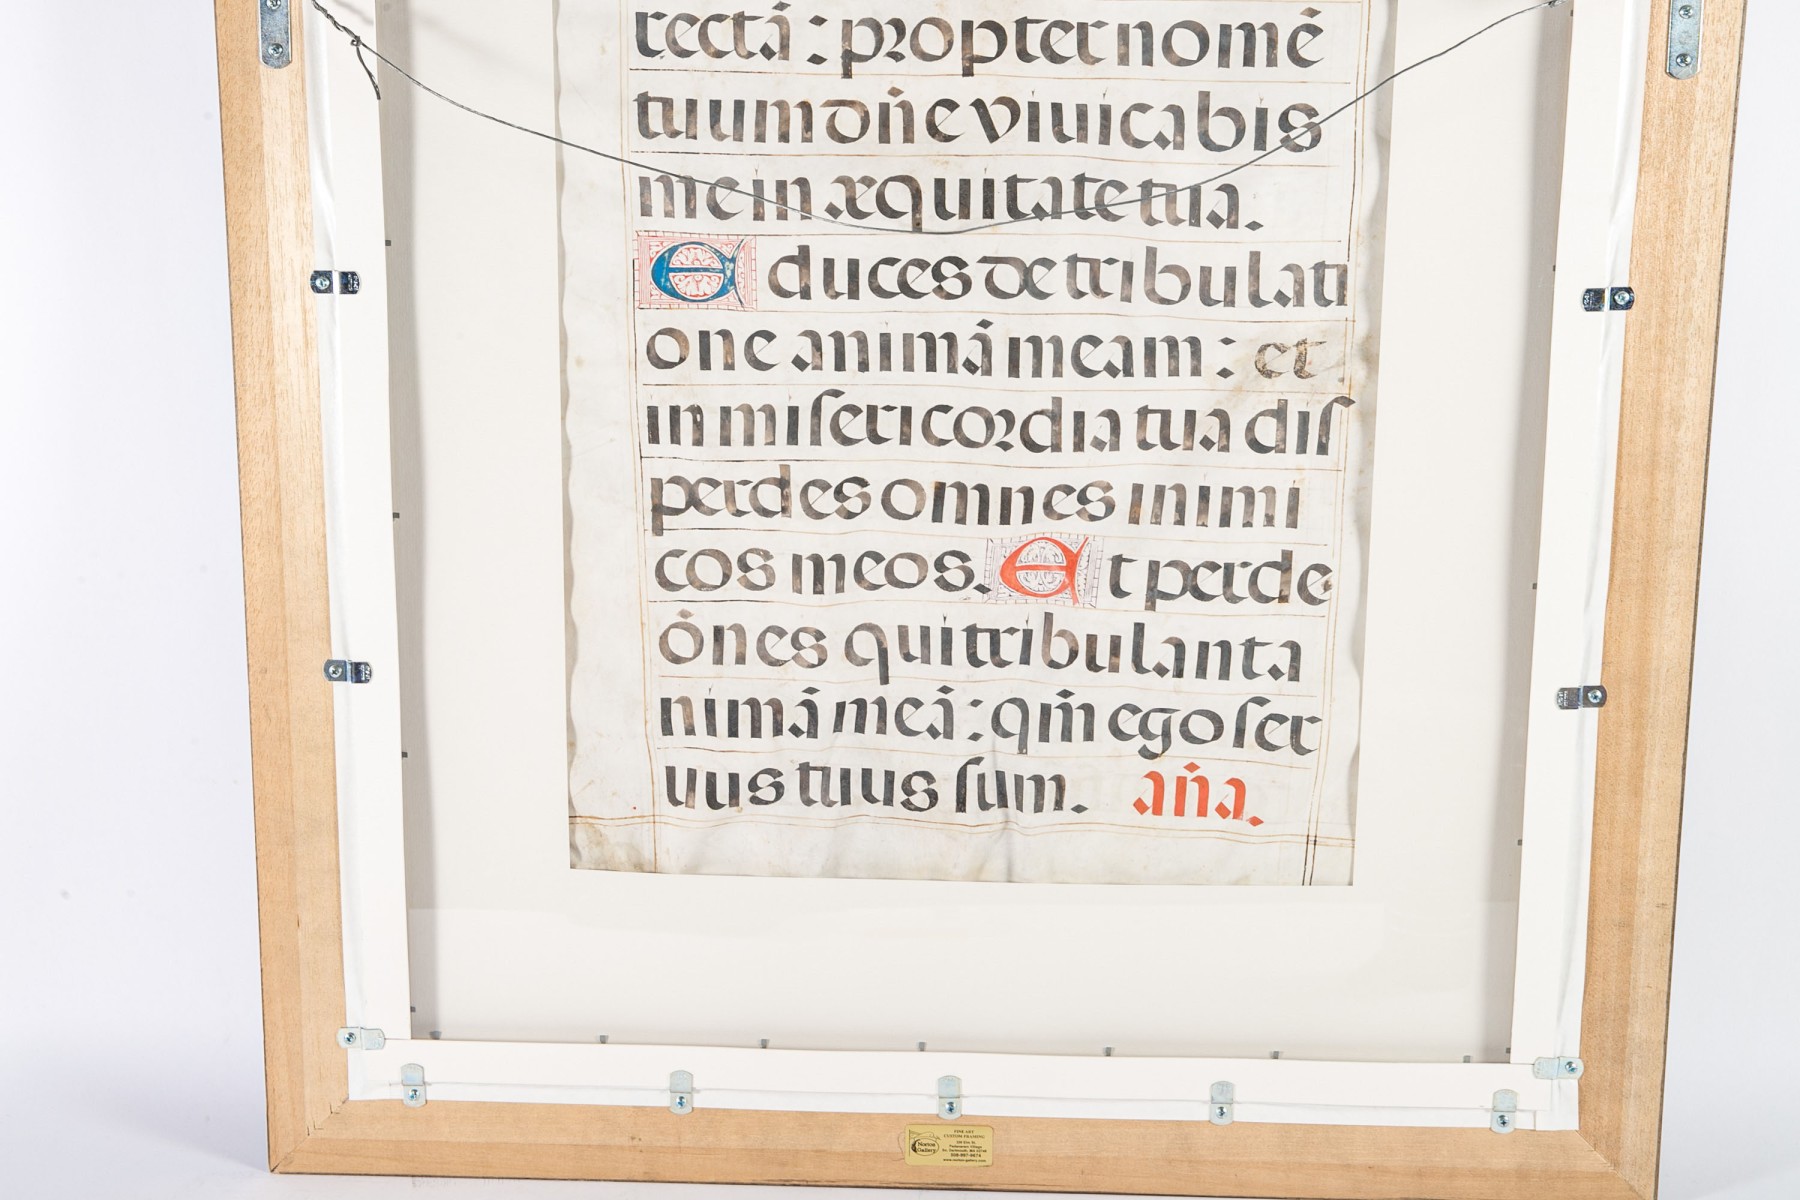 rectā : propter nomē
tuum dn̄e vivicabis
me in æquitate tua.
Educes de tribulati
one animā meam : et
in miſericordia tua diſ
perdes omnes inimi
cos meos. Et perde
ōnes qui tribulant a
nimā meā : qm̄ ego ſer
uus tuus ſum. an̄a.
Norton
Gallery
FINE ART
CUSTOM FRAMING
www.norton-gallery.com